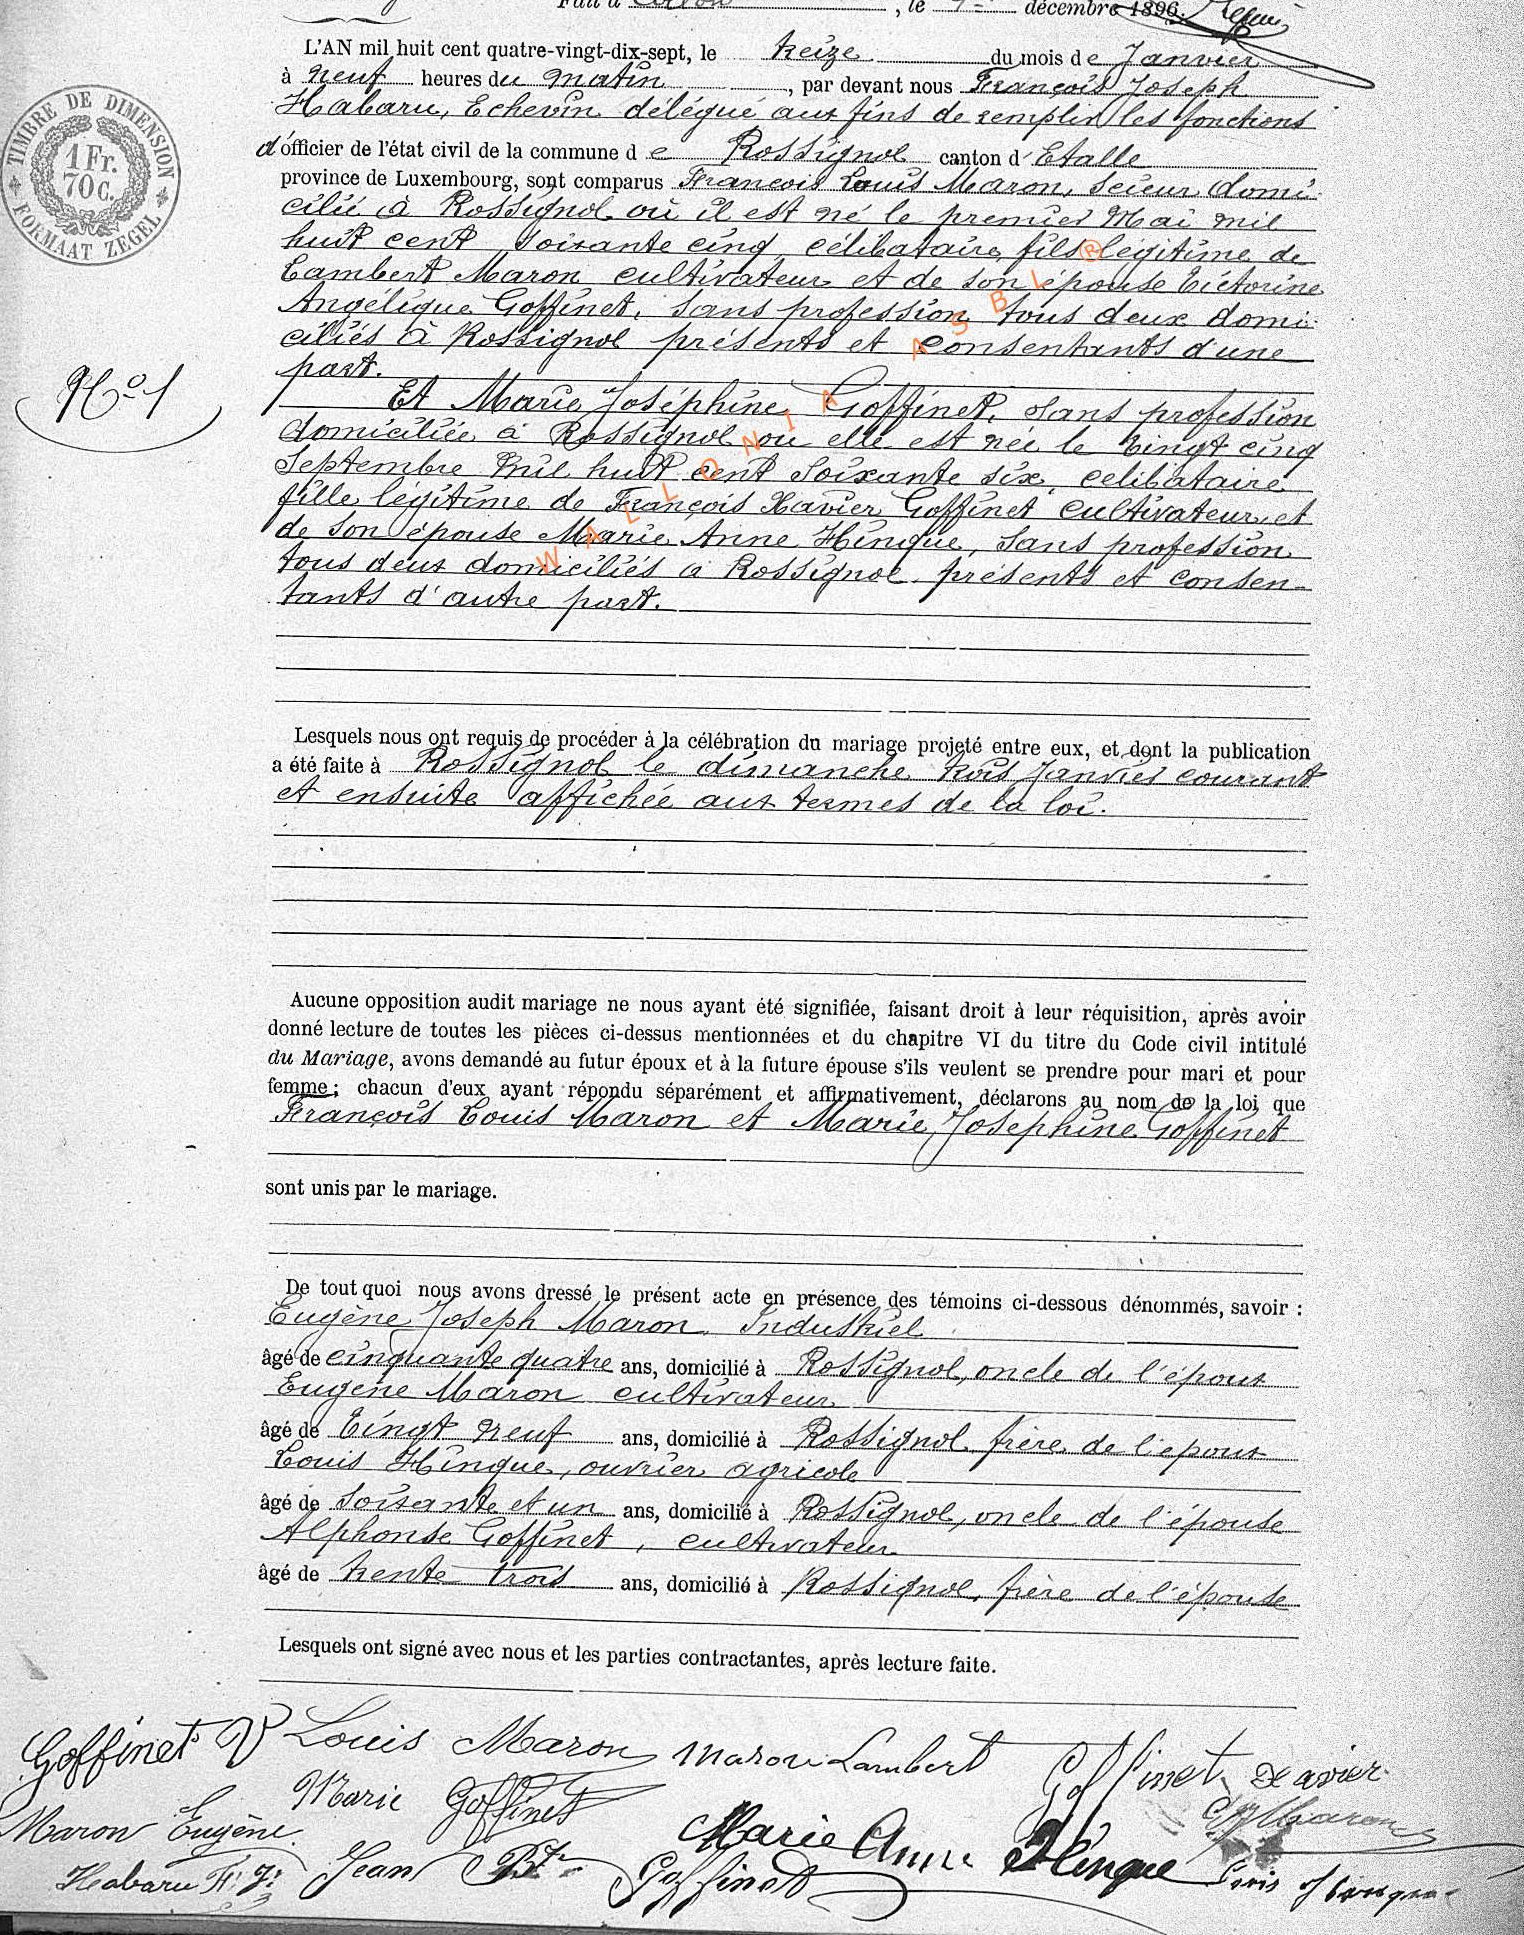 Fait à , le 1er décembre 1896.
TIMBRE DE DIMENSION
1 Fr.
70 C.
FORMAAT ZEGEL
L'AN mil huit cent quatre-vingt-dix-sept, le treize du mois de Janvier
à neuf heures du matin, par devant nous François Joseph
Habaru, Echevin délégué aux fins de remplir les fonctions
d'officier de l'état civil de la commune de Rossignol canton d'Etalle
province de Luxembourg, sont comparus François Louis Maron, Scieur domi-
cilié à Rossignol où il est né le premier Mai mil
huit cent soixante cinq, célibataire, fils légitime de
Lambert Maron cultivateur et de son épouse Victorine
Angélique Goffinet, sans profession tous deux domi-
ciliés à Rossignol présents et consentants d'une
part.
Nº 1
Et Marie Joséphine Goffinet, sans profession
domiciliée à Rossignol ou elle est née le vingt cinq
Septembre mil huit cent soixante six, celibataire
fille légitime de François Xavier Goffinet cultivateur et
de son épouse Marie Anne Hinque, sans profession
tous deux domiciliés à Rossignol présents et consen-
tants d'autre part.
WALLONIA ASBL ®
Lesquels nous ont requis de procéder à la célébration du mariage projeté entre eux, et dont la publication
a été faite à Rossignol le dimanche trois Janvier courant
et ensuite affichée aux termes de la loi.
Aucune opposition audit mariage ne nous ayant été signifiée, faisant droit à leur réquisition, après avoir
donné lecture de toutes les pièces ci-dessus mentionnées et du chapitre VI du titre du Code civil intitulé
du Mariage, avons demandé au futur époux et à la future épouse s'ils veulent se prendre pour mari et pour
femme; chacun d'eux ayant répondu séparément et affirmativement, déclarons au nom de la loi que
François Louis Maron et Marie Josephine Goffinet
sont unis par le mariage.
De tout quoi nous avons dressé le présent acte en présence des témoins ci-dessous dénommés, savoir :
Eugène Joseph Maron Industriel
âgé de cinquante quatre ans, domicilié à Rossignol, oncle de l'époux
Eugène Maron cultivateur
âgé de vingt neuf ans, domicilié à Rossignol frère de l'epoux
Louis Hinque, ouvrier agricole
âgé de soixante et un ans, domicilié à Rossignol, oncle de l'épouse
Alphonse Goffinet, cultivateur
âgé de trente trois ans, domicilié à Rossignol, frère de l'épouse
Lesquels ont signé avec nous et les parties contractantes, après lecture faite.
Goffinet V Louis Maron Maron Lambert Goffinet Xavier
Marie Goffinet Maron
Maron Eugène Marie Anne Hinque Louis Hinque
Habaru F. J. Jean Bte Goffinet